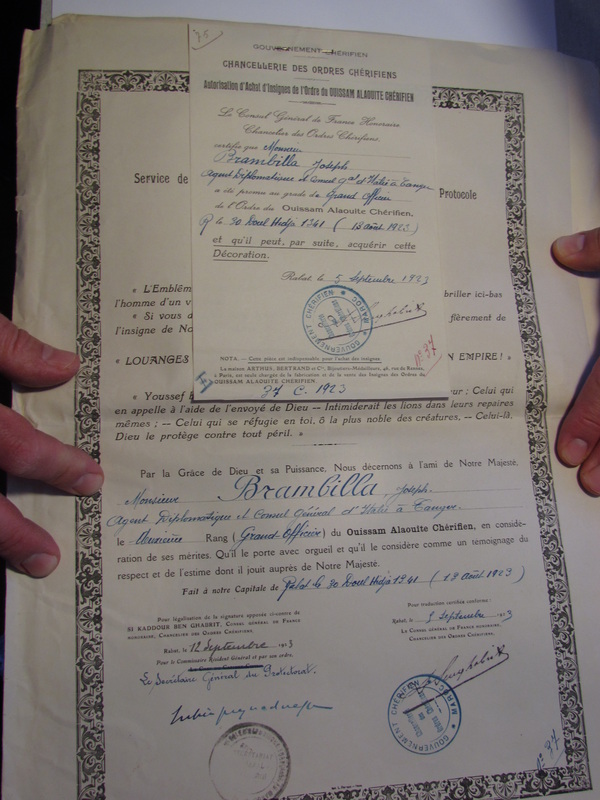 GOUVERNEMENT CHÉRIFIEN
CHANCELLERIE DES ORDRES CHÉRIFIENS
Autorisation d'Achat d'Insignes de l'Ordre du OUISSAM ALAOUITE CHÉRIFIEN
Le Consul Général de France Honoraire
Chancelier des Ordres Chérifiens,
certifie que Monsieur
Brambilla Joseph
Agent Diplomatique et Consul Gal d'Italie à Tanger
a été promu au grade de Grand Officier
de l'Ordre du Ouissam Alaouite Chérifien,
le 30 Doul Hidja 1341 (13 août 1923)
et qu'il peut, par suite, acquérir cette
Décoration.
Rabat, le 5 Septembre 1923
GOUVERNEMENT CHÉRIFIEN MAROC
N° 37
NOTA. — Cette pièce est indispensable pour l'achat des insignes.
La maison ARTHUS, BERTRAND et Cie, Bijoutiers-Médailleurs, 46, rue de Rennes,
à Paris, est seule chargée de la fabrication et de la vente des Insignes des Ordres du
OUISSAM ALAOUITE CHÉRIFIEN
37 C. 1923
Service de
Protocole
« L'Emblèm
briller ici-bas
l'homme d'un v
« Si vous d
fièrement de
l'insigne de No
« LOUANGES
N EMPIRE ! »
« Youssef
ur ; Celui qui
en appelle à l'aide de l'envoyé de Dieu -- Intimiderait les lions dans leurs repaires
mêmes ; -- Celui qui se réfugie en toi, ô la plus noble des créatures, -- Celui-là,
Dieu le protège contre tout péril. »
Par la Grâce de Dieu et sa Puissance, Nous décernons à l'ami de Notre Majesté,
Monsieur Brambilla, Joseph.
Agent Diplomatique et Consul Général d'Italie à Tanger
le Deuxième Rang (Grand Officier) du Ouissam Alaouite Chérifien, en considé-
ration de ses mérites. Qu'il le porte avec orgueil et qu'il le considère comme un témoignage du
respect et de l'estime dont il jouit auprès de Notre Majesté.
Fait à notre Capitale de Rabat le 30 Doul Hidja 1341 (13 août 1923)
Pour légalisation de la signature apposée ci-contre de
SI KADDOUR BEN GHABRIT, CONSUL GÉNÉRAL DE FRANCE
HONORAIRE, CHANCELIER DES ORDRES CHÉRIFIENS.
Rabat, le 12 Septembre 1923
Pour le Commissaire Résident Général et par son ordre,
Le Secrétaire Général du Protectorat.
Pour traduction certifiée conforme :
Rabat, le 5 Septembre 1923
LE CONSUL GÉNÉRAL DE FRANCE HONORAIRE,
CHANCELIER DES ORDRES CHÉRIFIENS,
GOUVERNEMENT CHÉRIFIEN MAROC
N° 37